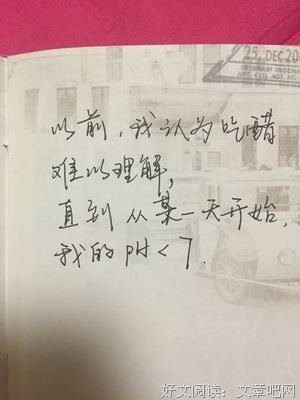 25. DEC 20
以前，我认为吃醋
难以理解，
直到从某一天开始，
我的PH<7.
好文阅读：文章吧网